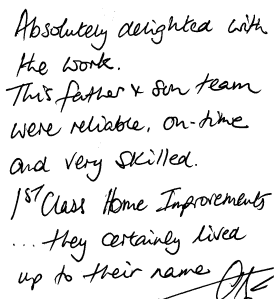 Absolutely delighted with
the work.
This father & son team
were reliable, on-time
and very skilled.
1ST Class Home Improvements
... they certainly lived
up to their name